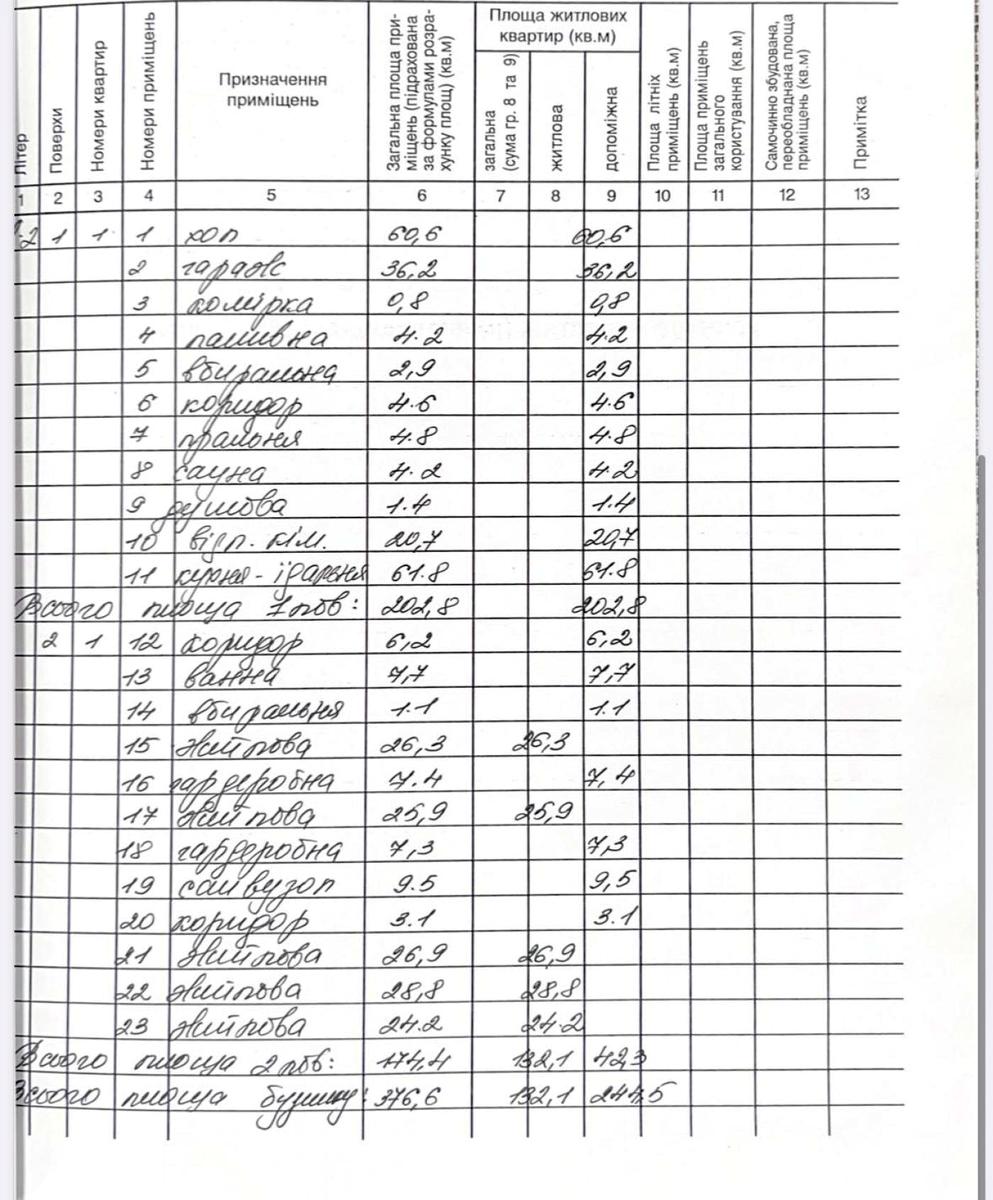 Літер
Поверхи
Номери квартир
Номери приміщень
Призначення
приміщень
Загальна площа при-
міщень (підрахована
за формулами розра-
хунку площ) (кв.м)
Площа житлових
квартир (кв.м)
загальна
(сума гр. 8 та 9)
житлова
допоміжна
Площа літніх
приміщень (кв.м)
Площа приміщень
загального
користування (кв.м)
Самочинно збудована,
переобладнана площа
приміщень (кв.м)
Примітка
1 2 3 4 5 6 7 8 9 10 11 12 13
1 1 1 хол 60,6 60,6
2 гараж 36,2 36,2
3 комірка 0,8 0,8
4 паливна 4.2 4.2
5 вбиральня 2,9 2,9
6 коридор 4.6 4.6
7 пральня 4.8 4.8
8 сауна 4.2 4.2
9 душова 1.4 1.4
10 відп. кім. 20,7 20,7
11 кухня - їдальня 61.8 61.8
Всього площа 1 пов: 202,8 202,8
2 1 12 коридор 6,2 6,2
13 ванна 7,7 7,7
14 вбиральня 1.1 1.1
15 житлова 26,3 26,3
16 гардеробна 7.4 7,4
17 житлова 25,9 25,9
18 гардеробна 7,3 7,3
19 санвузол 9.5 9,5
20 коридор 3.1 3.1
21 житлова 26,9 26,9
22 житлова 28,8 28,8
23 житлова 24.2 24.2
Всього площа 2 пов: 174,4 132,1 42,3
Всього площа будинку: 376,6 132,1 244,5